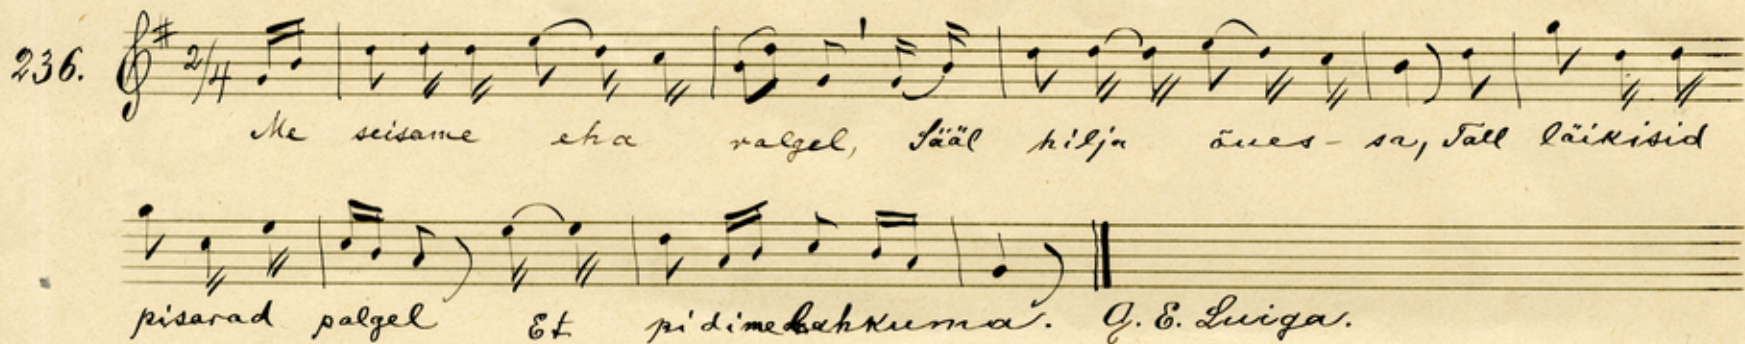 236. 2/4
Me seisame eha valgel, Sääl hilja õues-sa, Tall läikisid
pisarad palgel Et pidime lahkuma. G. E. Luiga.